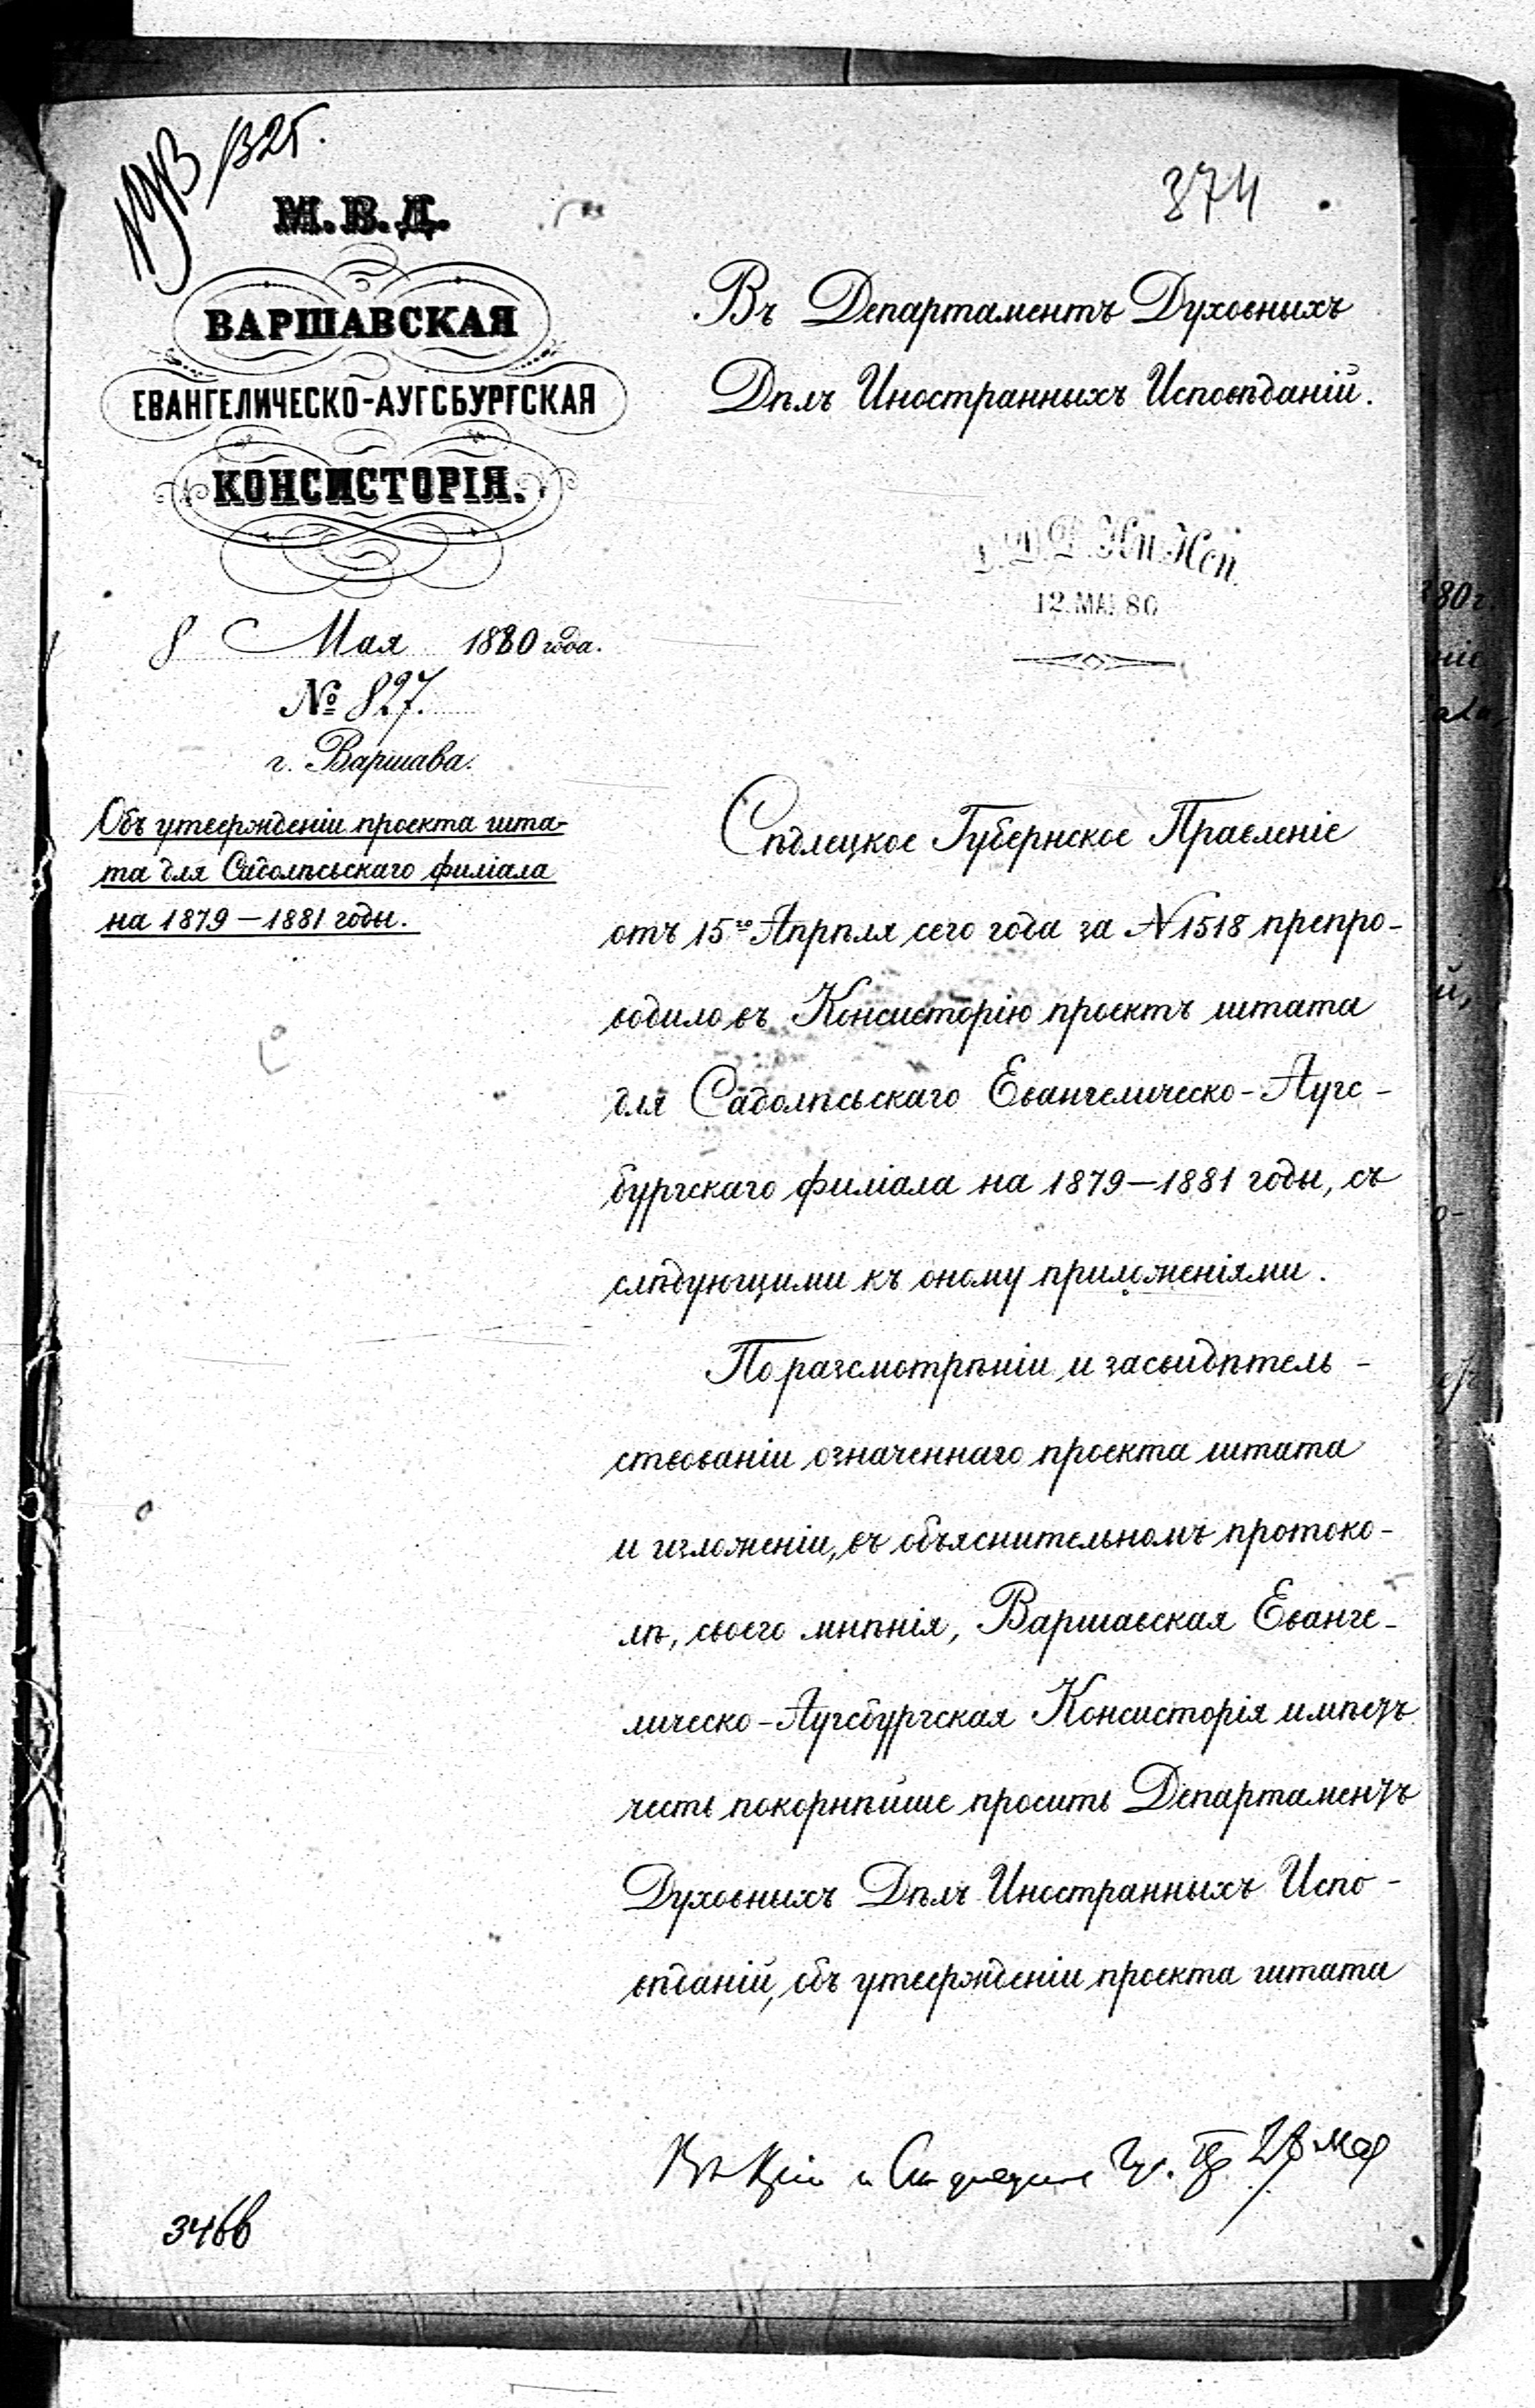 374
М.В.Д.
ВАРШАВСКАЯ
ЕВАНГЕЛИЧЕСКО-АУГСБУРГСКАЯ
КОНСИСТОРІЯ.
8 Мая 1880 года.
№ 827.
г. Варшава.
Объ утвержденіи проекта шта-
та для Садолѣсьскаго филіала
на 1879 — 1881 годы.
Въ Департаментъ Духовныхъ
Дѣлъ Иностранныхъ Исповѣданій.
Д.Д.Д. Ин. Исп.
12. МАІ. 80
Сѣдлецкое Губернское Правленіе
отъ 15го Апрѣля сего года за N 1518 препро-
водило въ Консисторію проектъ штата
для Садолѣсьскаго Евангелическо-Аугс-
бургскаго филіала на 1879—1881 годы, съ
слѣдующими къ оному приложеніями.
По разсмотрѣніи и засвидѣтель-
ствованіи означеннаго проекта штата
и изложеніи, въ объяснительномъ протоко-
лѣ, своего мнѣнія, Варшавская Еванге-
лическо-Аугсбургская Консисторія имѣетъ
честь покорнѣйше просить Департаментъ
Духовныхъ Дѣлъ Иностранныхъ Испо-
вѣданій, объ утвержденіи проекта штата
28 мая
3466